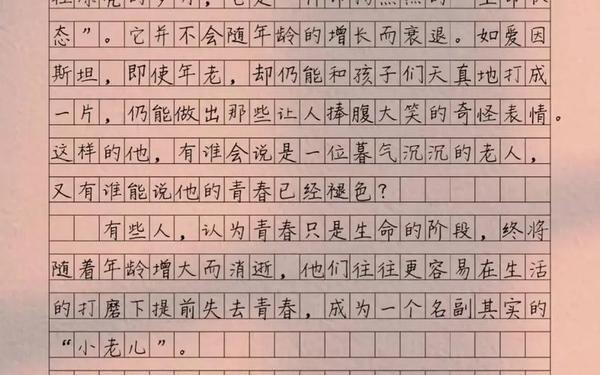 态”。它并不会随年龄的增长而衰退。如爱因
斯坦，即使年老，却仍能和孩子们天真地打成
一片，仍能做出那些让人捧腹大笑的奇怪表情。
这样的他，有谁会说是一位暮气沉沉的老人，
又有谁能说他的青春已经褪色？
有些人，认为青春只是生命的阶段，终将
随着年龄增大而消逝，他们往往更容易在生活
的打磨下提前失去青春，成为一个名副其实的
“小老儿”。